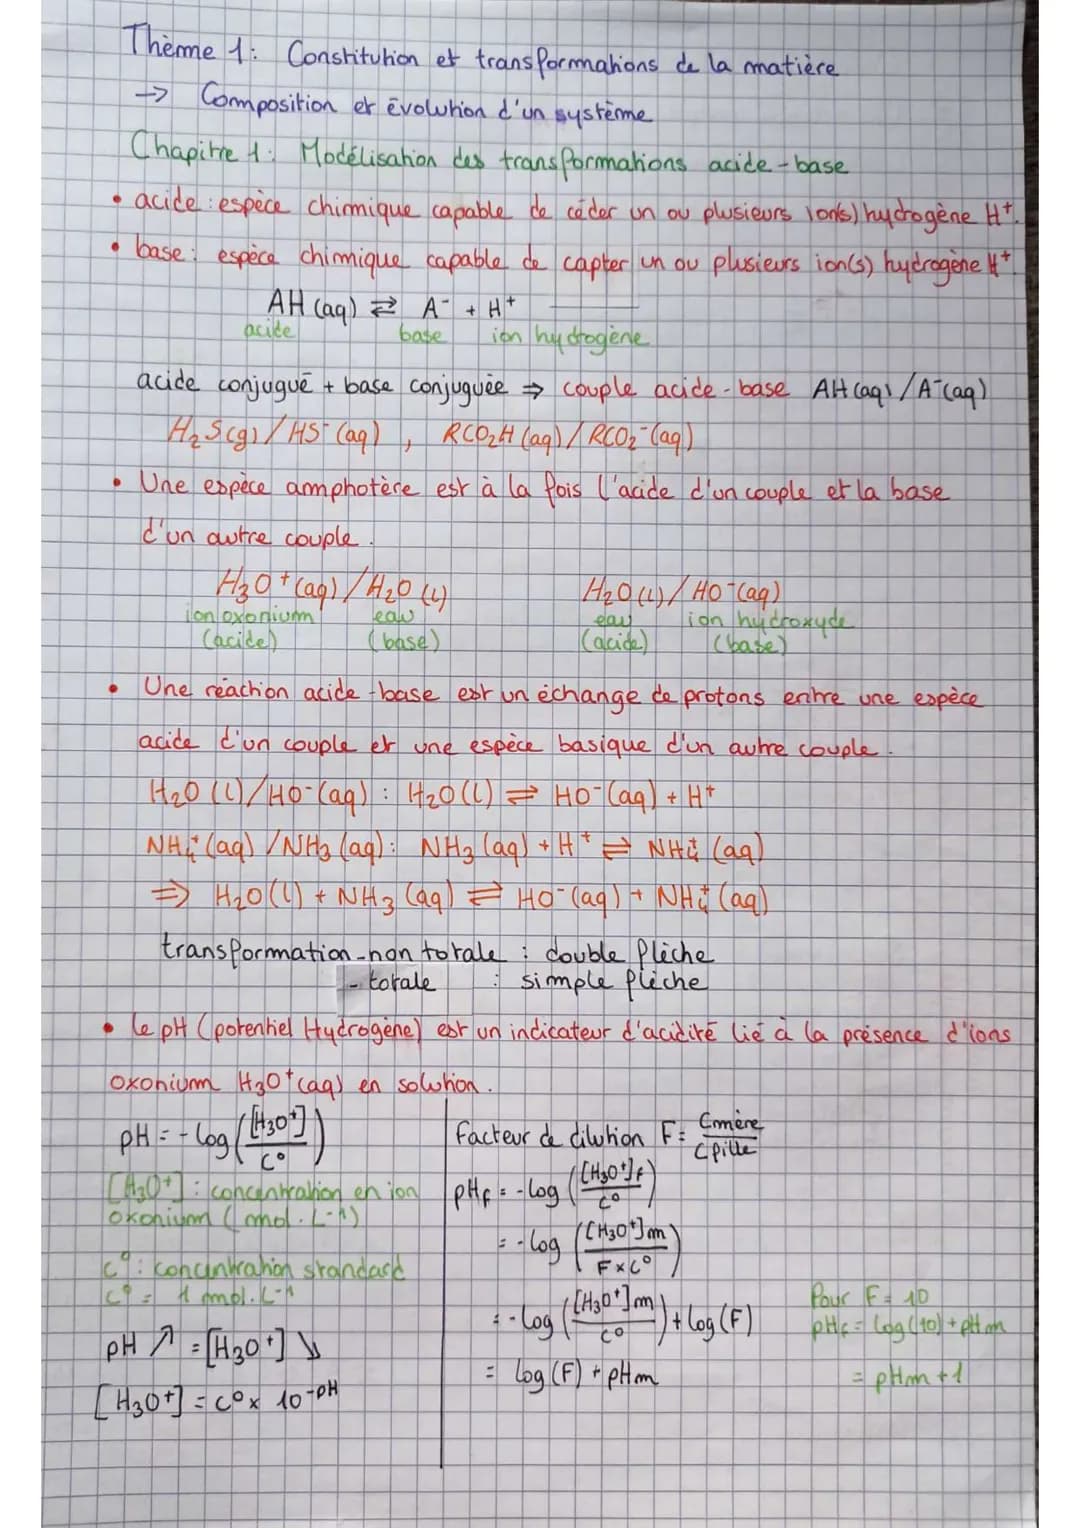 Thème 1: Constitution et transformations de la matière
→ Composition et évolution d'un système
Chapitre 1: Modélisation des transformations acide-base
• acide: espèce chimique capable de céder un ou plusieurs ion(s) hydrogène H⁺.
• base: espèce chimique capable de capter un ou plusieurs ion(s) hydrogène H⁺.
AH (aq) ⇄ A⁻ + H⁺
acide base ion hydrogène
acide conjugué + base conjuguée ⇒ couple acide-base AH(aq)/A⁻(aq)
H₂S(g)/HS⁻(aq), RCO₂H(aq)/RCO₂⁻(aq)
• Une espèce amphotère est à la fois l'acide d'un couple et la base
d'un autre couple.
H₃O⁺(aq)/H₂O(l) H₂O(l)/HO⁻(aq)
ion oxonium eau eau ion hydroxyde
(acide) (base) (acide) (base)
• Une réaction acide-base est un échange de protons entre une espèce
acide d'un couple et une espèce basique d'un autre couple.
H₂O(l)/HO⁻(aq) : H₂O(l) ⇌ HO⁻(aq) + H⁺
NH₄⁺(aq)/NH₃(aq): NH₃(aq) + H⁺ ⇌ NH₄⁺(aq)
⇒ H₂O(l) + NH₃(aq) ⇌ HO⁻(aq) + NH₄⁺(aq)
transformation - non totale : double flèche
- totale : simple flèche
• Le pH (potentiel Hydrogène) est un indicateur d'acidité lié à la présence d'ions
oxonium H₃O⁺(aq) en solution.
pH = -log([H₃O⁺]/C°)
[H₃O⁺]: concentration en ion
oxonium (mol.L⁻¹)
C°: concentration standard
C° = 1 mol.L⁻¹
pH ↗ = [H₃O⁺] ↘
[H₃O⁺] = C° × 10⁻ᵖᴴ
Facteur de dilution F = Cmère/Cfille
pHf = -log([H₃O⁺]f/C°)
= -log([H₃O⁺]m/F×C°)
= -log([H₃O⁺]m/C°) + log(F)
= log(F) + pHm
Pour F = 10
pHf = log(10) + pHm
= pHm + 1